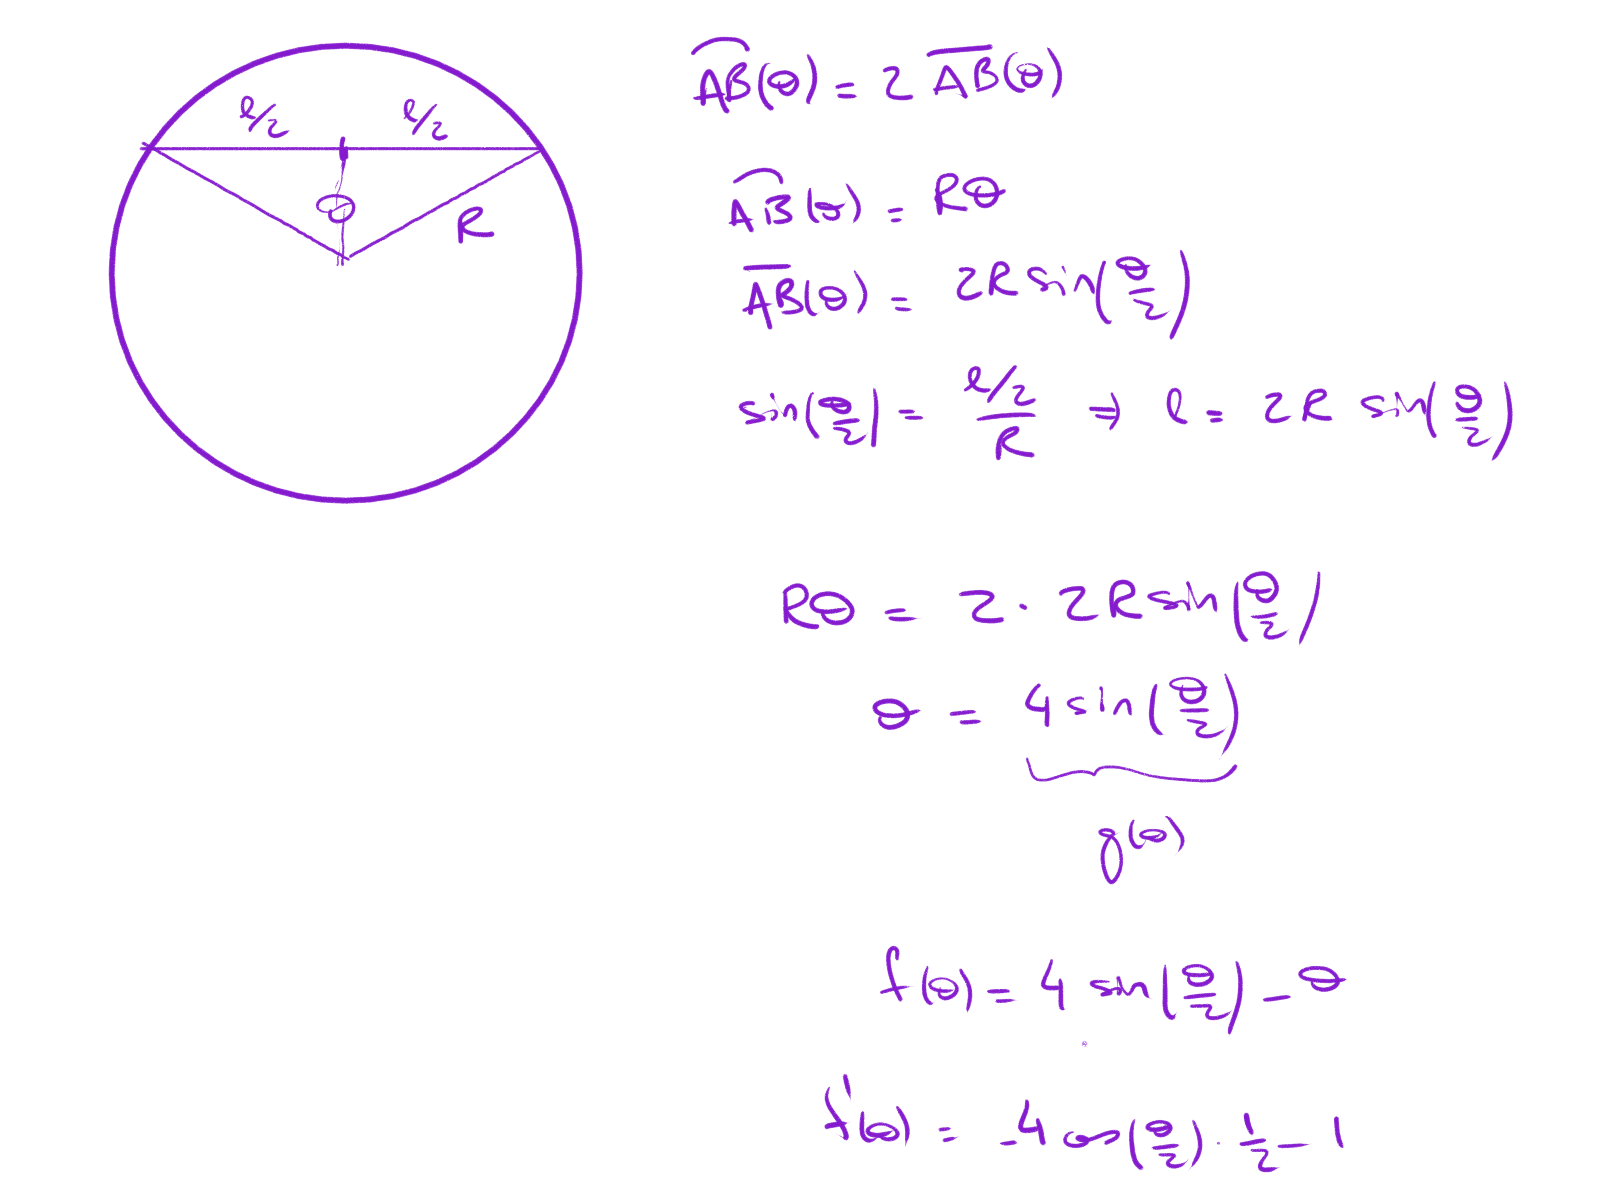 l/2 l/2
θ
R
AB(θ) = 2 AB(θ)
AB(θ) = Rθ
AB(θ) = 2R sin(θ/2)
sin(θ/2) = l/2 / R ⇒ l = 2R sin(θ/2)
Rθ = 2 · 2R sin(θ/2)
θ = 4 sin(θ/2)
g(θ)
f(θ) = 4 sin(θ/2) - θ
f'(θ) = -4 cos(θ/2) · 1/2 - 1